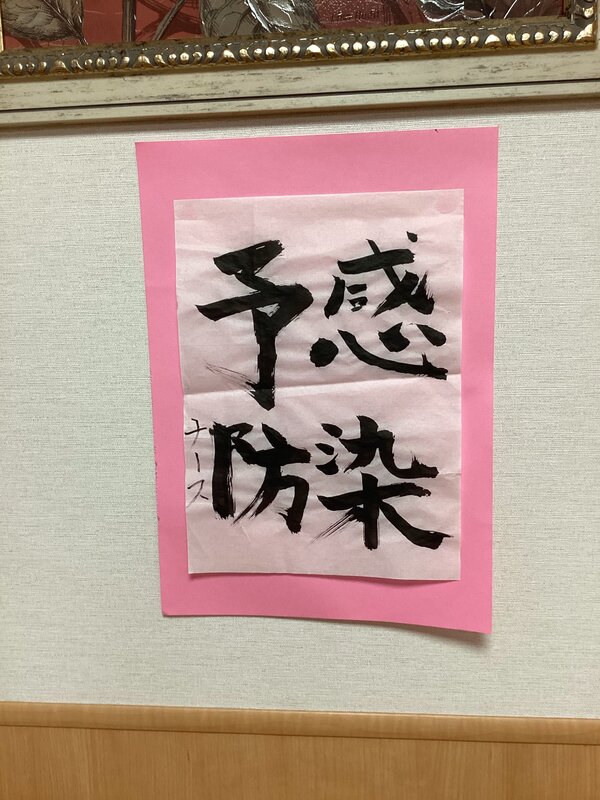 感染
予防
ナース